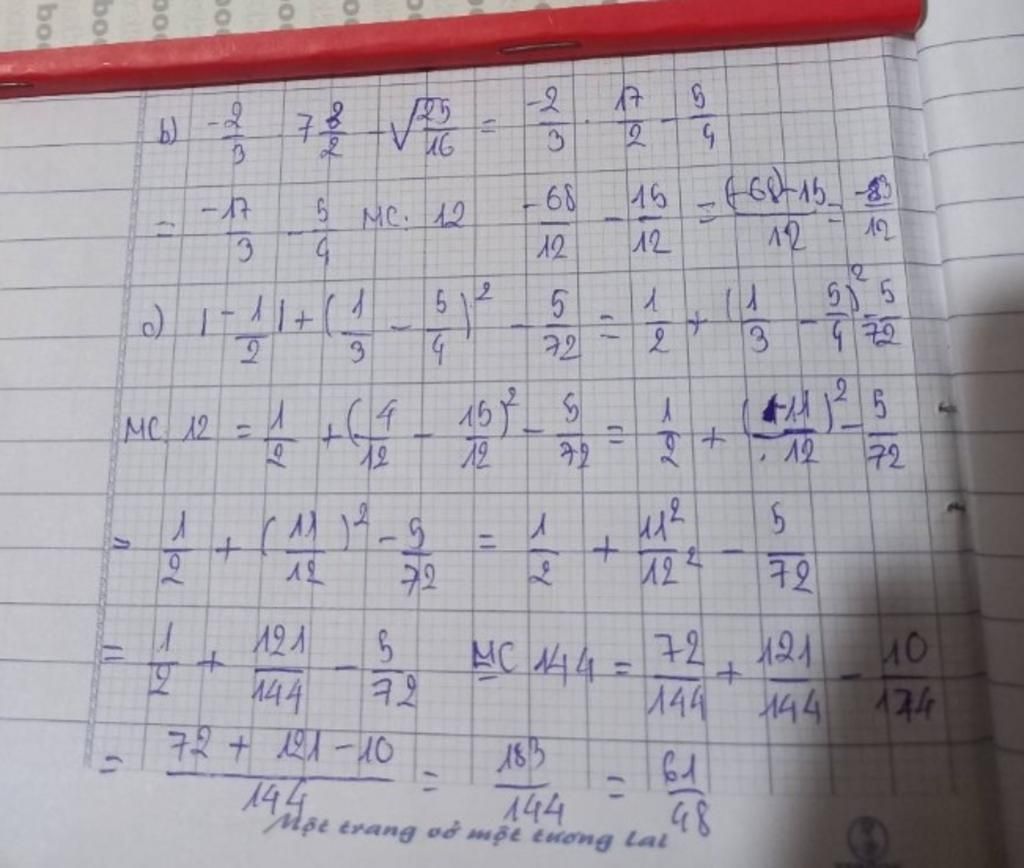 b) -2/3 · 7 3/2 - √25/16 = -2/3 · 17/2 - 5/4
= -17/3 - 5/4 MC: 12 -68/12 - 15/12 = (-68)-15/12 = -83/12
c) |-1/2| + (1/3 - 5/4)² - 5/72 = 1/2 + (1/3 - 5/4)² - 5/72
MC 12 = 1/2 + (4/12 - 15/12)² - 5/72 = 1/2 + (-11/12)² - 5/72
= 1/2 + (11/12)² - 5/72 = 1/2 + 11²/12² - 5/72
= 1/2 + 121/144 - 5/72 MC 144 = 72/144 + 121/144 - 10/144
= 72 + 121 - 10/144 = 183/144 = 61/48
Một trang vở một tương lai